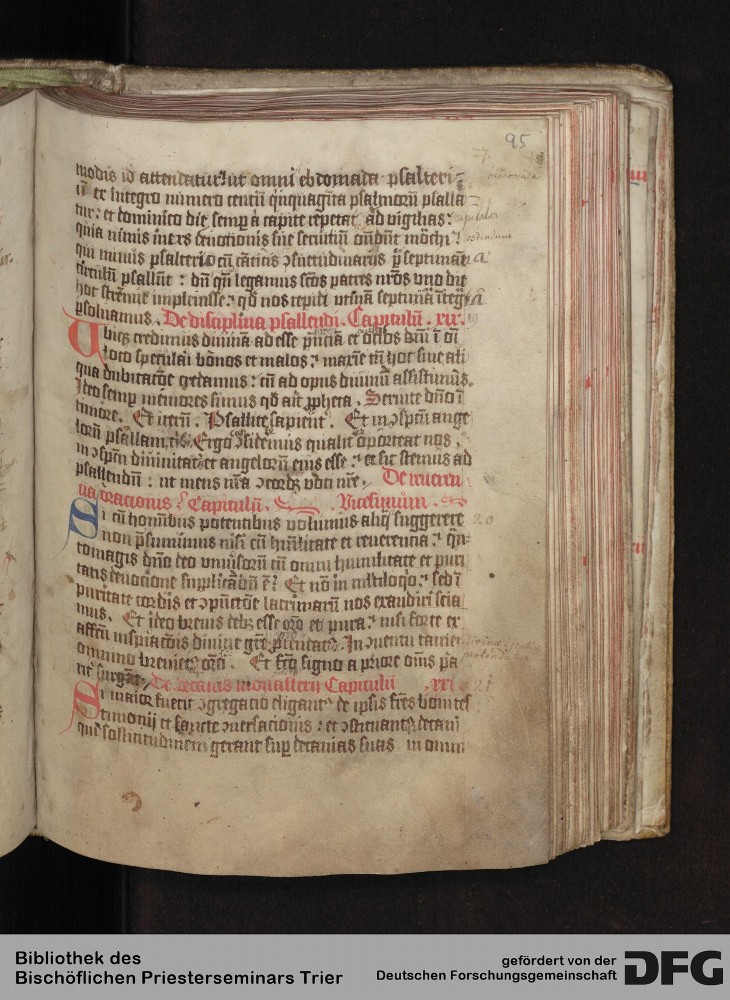 95
modis id attendatur: ut omni ebdomada psalteri-
ū ex integro numero centū q̄nquagīta psalmorū psalla-
tur: et dominico die semp̄ a capite repetat̄ ad vigilias:
quia nimis iners deuotionis sue seruitiū ondūt mōchi:
qui minus psalterio cū cāticis ɔsuetudinariis p̄ septimane
circulū psallūt: dū q̄n legamus sctōs patres nrōs vno die
hoc strennue impleuisse: qd̄ nos tepidi vtinā septimāa īteg̃a
psoluamus. De disciplina psallendi. Capitulū. xix.
Ubiq; credimus diuinā ad esse p̄nciā et oclōs dnī ī oī
loco speculari bonos et malos: maxīe tn̄ hoc sine ali
qua dubitatōe credamus: cū ad opus diuinū assistimus.
Ideo semp̄ memores simus qd̄ ait ꝓpheta. Seruite dnō ī
timore. Et iterū. Psallite sapient̄. Et in ɔspc̄tu ange
lorū psallam tibi. Ergo ɔsideremus qualit̄ oporteat nos
in ɔspc̄tu diuinitatis et angelorū eius esse: et sic stemus ad
psallendū: ut mens nrā ɔcordz voci nrē. De reueren
tia orationis. Capitulū. Vicesimum.
Si cū hominibus potentibus volumus aliq̄ suggerere
non p̄sumimus nisi cū humilitate et reuerentia: q̄n-
tomagis dnō deo vniūsorū cū omni humilitate et puri
tatis deuotione supplicādū ē? Et nō in multiloq̄o: sed ī
puritate cordis et ɔpunctōe lacrimarū nos exaudiri scia
mus. Et ideo breuis debz esse orō et pura: nisi forte ex
affc̄tu inspiratōis diuine grē ꝓtendat̄. In ɔuentu tamen
omnino breuiet̄ orō. Et fcō signo a priore om̄s pa
rit̄ surgāt. De decanis monasterij Capitulū .xxi.
Si maior fuerit ɔgregatio eligant̄ de ipsis frēs boni tes
timonij et sancte ɔuersationis: et ɔstituant̄ decani
qui sollicitudinem gerant sup̄ decanias suas in omni
20
21
Bibliothek des
Bischöflichen Priesterseminars Trier
gefördert von der
Deutschen Forschungsgemeinschaft
DFG